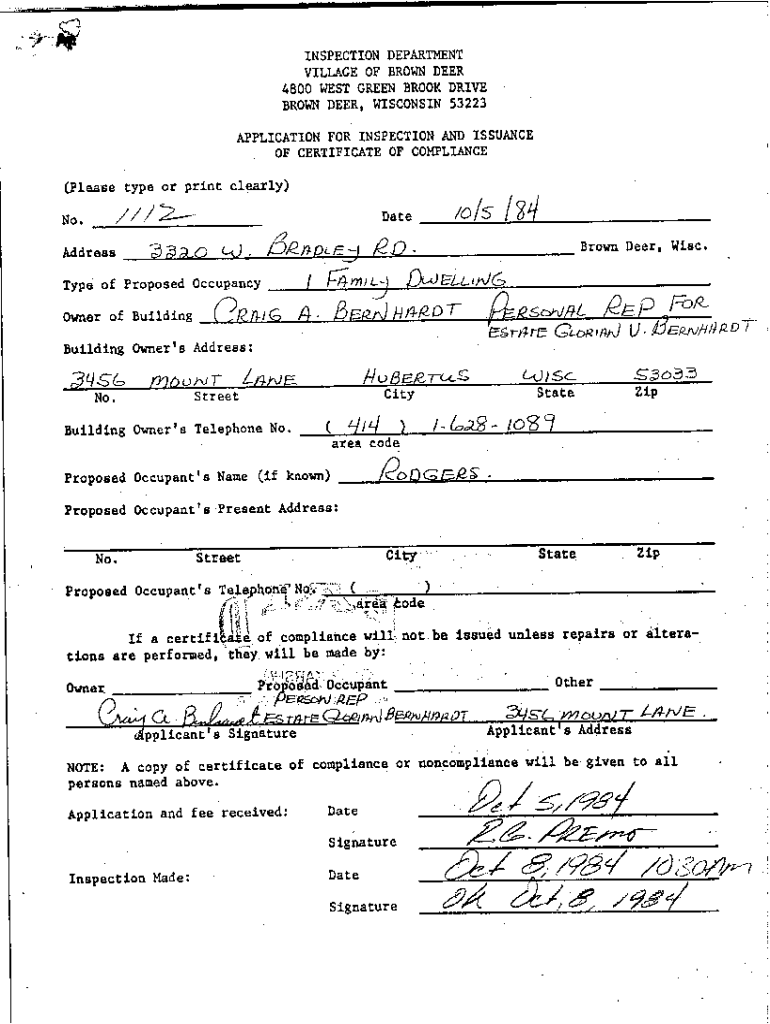 INSPECTION DEPARTMENT
VILLAGE OF BROWN DEER
4800 WEST GREEN BROOK DRIVE
BROWN DEER, WISCONSIN 53223
APPLICATION FOR INSPECTION AND ISSUANCE
OF CERTIFICATE OF COMPLIANCE
(Please type or print clearly)
No. 1112 Date 10/5/84
Address 3320 W. BRADLEY RD. Brown Deer, Wisc.
Type of Proposed Occupancy 1 FAMILY DWELLING
Owner of Building CRAIG A. BERNHARDT PERSONAL REP FOR
ESTATE GLORIAN V. BERNHARDT
Building Owner's Address:
3456 MOUNT LANE HUBERTUS WISC 53033
No. Street City State Zip
Building Owner's Telephone No. ( 414 ) 1-628-1089
area code
Proposed Occupant's Name (if known) RODGERS.
Proposed Occupant's Present Address:
No. Street City State Zip
Proposed Occupant's Telephone No. ( )
area code
If a certificate of compliance will not be issued unless repairs or altera-
tions are performed, they will be made by:
Owner Proposed Occupant Other
PERSON REP
Craig A. Bernhardt ESTATE GLORIAN BERNHARDT 3456 MOUNT LANE.
Applicant's Signature Applicant's Address
NOTE: A copy of certificate of compliance or noncompliance will be given to all
persons named above.
Application and fee received: Date Oct 5, 1984
Signature R.G. PREMO
Inspection Made: Date Oct 8, 1984 10:30Am
Signature OK Oct, 8, 1984